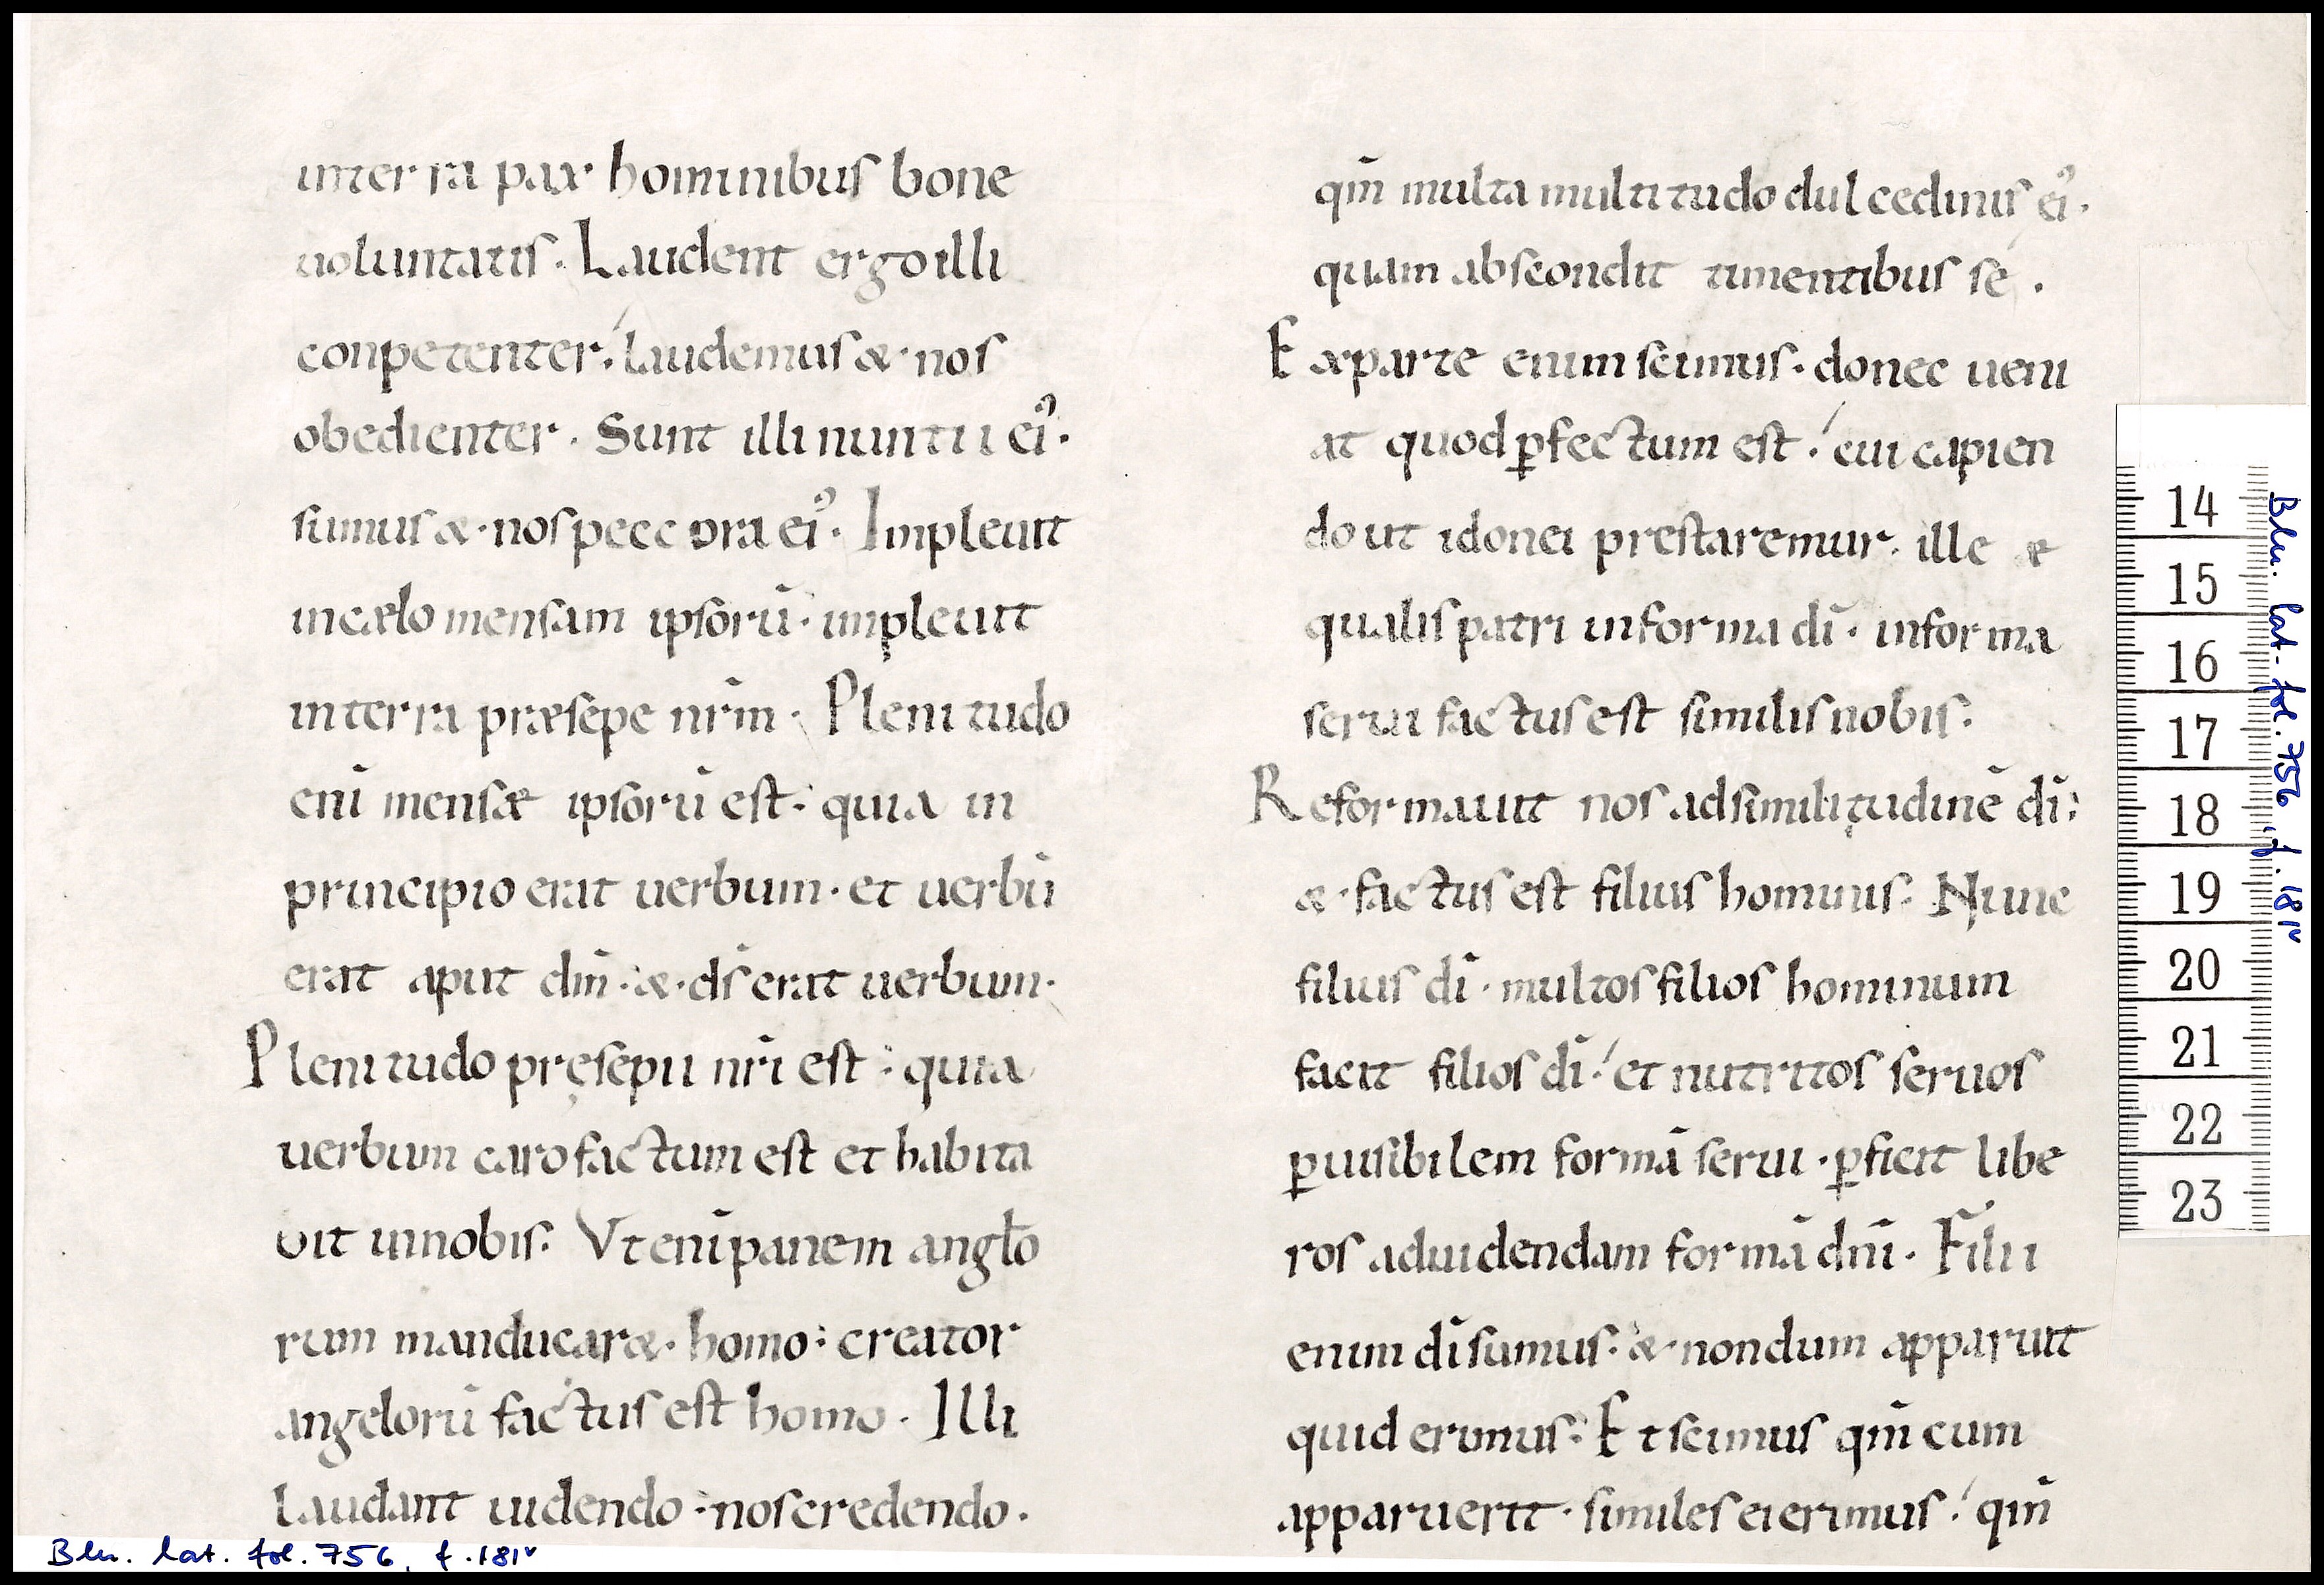 inter ra pax hominibus bone
uoluntatis. Laudent ergo illi
conpetenter. laudemus & nos
obedienter. Sunt illi nuntii ei᾽.
sumus & nos pecc ora ei᾽. Impleuit
incælo mensam ipsorū. impleuit
interra præsepe nr̄m. Plenitudo
enī mensæ ipsorū est. quia in
principio erat uerbum. et uerbū
erat aput dm̄. & ds̄ erat uerbum.
Plenitudo pręsepii nr̄i est. quia
uerbum caro factum est et habita
uit innobis. Vt enī panem anglo
rum manducar&. homo. creator
angelorū factus est homo. Illi
laudant uidendo. nos credendo.
qm̄ multa multitudo dulcedinis ei᾽.
quam abscondit timentibus se.
Exparte enim scimus. donec ueni
at quod ꝑfectum est. cui capien
do ut idonei prestaremur. ille æ
qualis patri informa dī. informa
serui factus est similis nobis.
Reformauit nos adsimilitudinē dī;
& factus est filius hominis. Nunc
filius dī. multos filios hominum
facit filios dī. et nutritos seruos
ꝑ uisibilem formā serui. ꝑficit libe
ros aduidendam formā dn̄i. Filii
enim dī sumus. & nondum apparuit
quid erimus. Et scimus qm̄ cum
apparuerit. similes ei erimus. qm̄
14
15
16
17
18
19
20
21
22
23
Bln. lat. fol. 756, f. 181v
Bln. lat. fol. 756, f. 181v